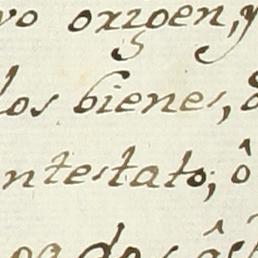 vo oxigen, y
los bienes,
ntestato; ô